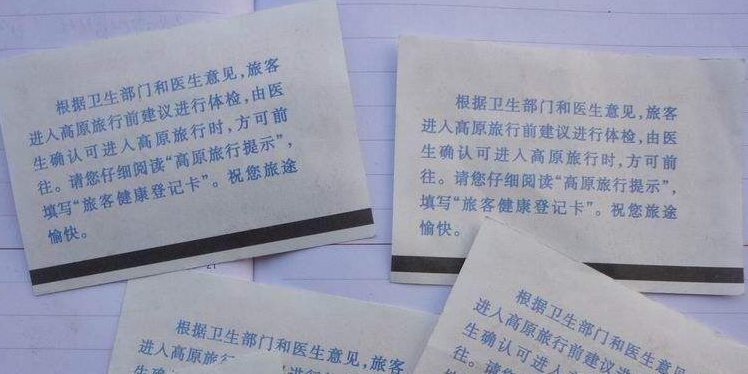 根据卫生部门和医生意见,旅客
进入高原旅行前建议进行体检,由医
生确认可进入高原旅行时,方可前
往。请您仔细阅读“高原旅行提示”,
填写“旅客健康登记卡”。祝您旅途
愉快。
根据卫生部门和医生意见,旅客
进入高原旅行前建议进行体检,由医
生确认可进入高原旅行时,方可前
往。请您仔细阅读“高原旅行提示”,
填写“旅客健康登记卡”。祝您旅途
愉快。
根据卫生部门和医生意见,旅客
进入高原旅
进行
生确
根据卫生部门和医生意见,
进入高原旅行前建议进
生确认可进入
往。请